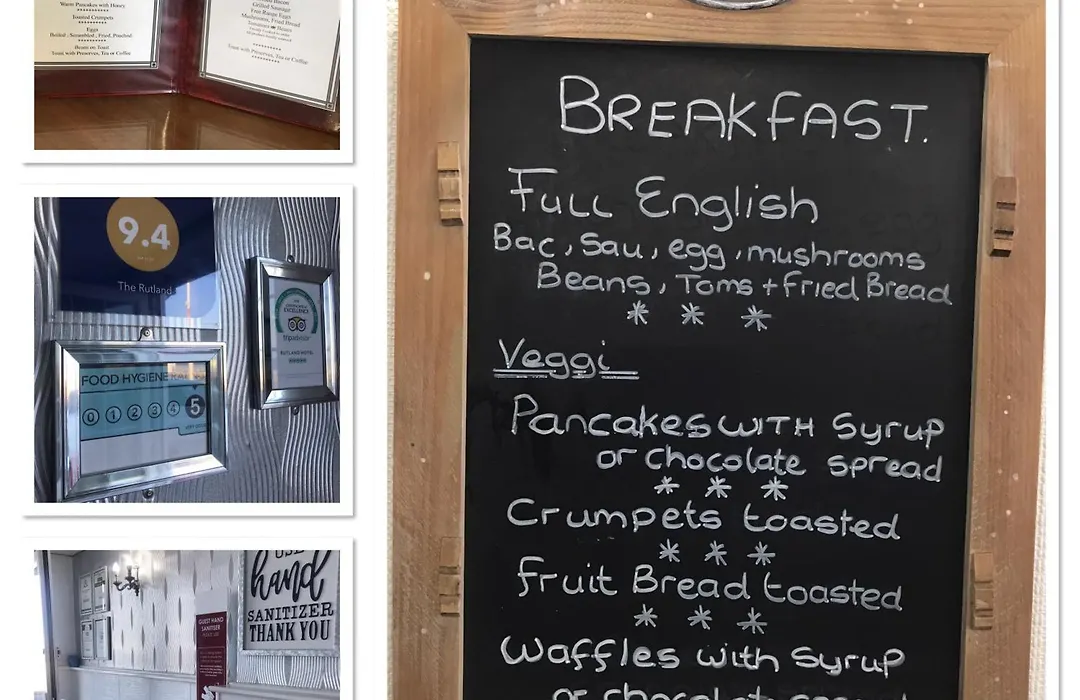 Warm Pancakes with Honey
**********
Toasted Crumpets
**********
Eggs
Boiled , Scrambled , Fried, Poached
**********
Beans on Toast
Toast with Preserves, Tea or Coffee
Grilled Sausage
Free Range Eggs
Mushrooms, Fried Bread
**********
Toast with Preserves, Tea or Coffee
**********
9.4
The Rutland
tripadvisor
RUTLAND HOTEL
FOOD HYGIENE
0 1 2 3 4 5
USE
hand
SANITIZER
THANK YOU
GUEST HAND
SANITISER
BREAKFAST.
Full English
Bac, Sau, egg, mushrooms
Beans, Toms + Fried Bread
* * *
Veggi
Pancakes WITH Syrup
or chocolate spread
* * *
Crumpets toasted
* * *
Fruit Bread toasted
* * *
Waffles with Syrup
or chocolate spread